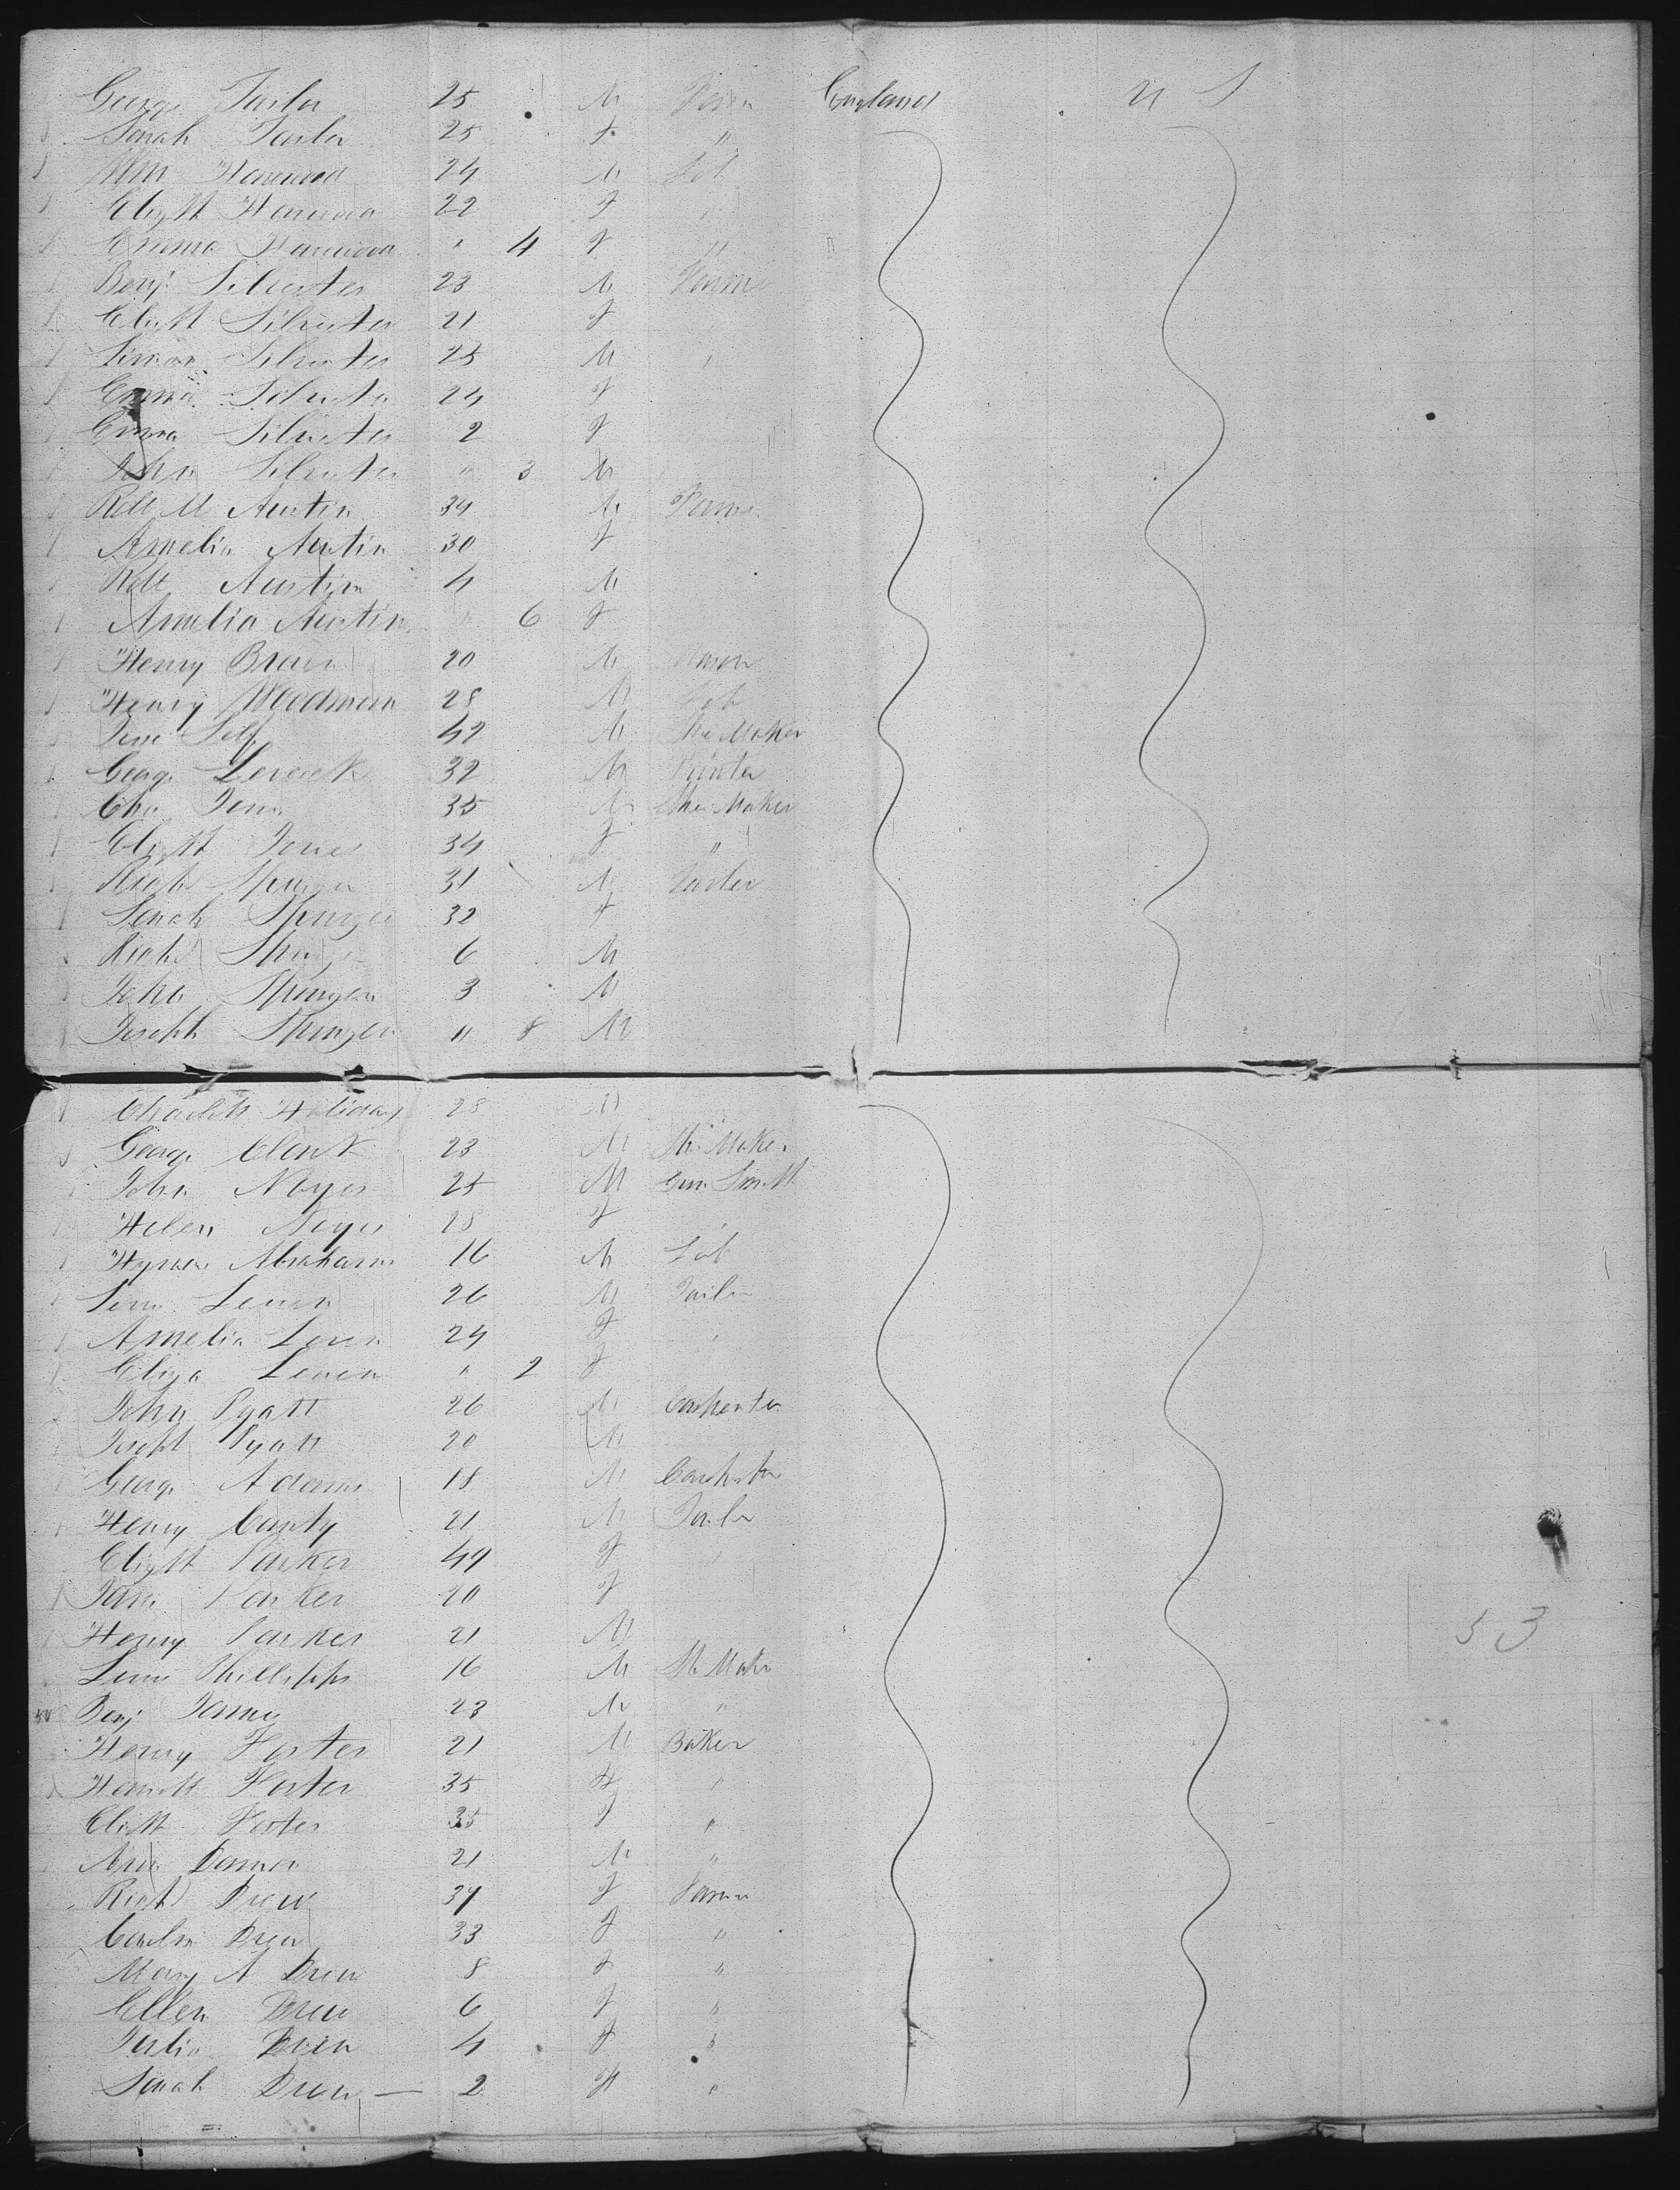 George Tailor 25 M England U S
Sarah Tailor 25 F "
Wm Harwood 24 M Lab
Elizth Harwood 22 F
Emma Harwood " 4 F "
Benj Silvester 23 M Farmer
Elizth Silvester 21 F
Simon Silvester 25 M "
Emma Silvester 24 F
Emma Silvester 2 F
John Silvester " 3 M
Robt M Austin 34 M Farmer
Amelia Austin 30 F
Robt Austin 4 M
Amelia Austin " 6 F
Henry Brown 20 M Mason
Henry Woodman 28 M Lab
Jesse Self 42 M Shoe Maker
George 32 M Printer
Chas Jones 35 M Shoe Maker
Elizth Jones 34 F "
Richd Spurgen 31 M
Sarah Spurgen 32 F
Richd Spurgen 6 M
John Spurgen 3 M
Joseph Spurgen " 8 M
Holiday 28 M
George Clark 23 M Sh Maker
John Noyes 25 M Gun Smith
Helen Noyes 28 F "
Hyman Abrahams 16 M Lab
Leven 26 M Tailor
Amelia Leven 24 F "
Eliza Leven " 2 F
John Pyatt 26 M Carpenter
Joseph Pyatt 20 M
George Adams 18 M Carpenter
Henry Canty 21 M Tailor
Elizth Parker 49 F "
Jane Parker 20 F
Henry Parker 21 M
Phillipps 16 M Sh Maker
Benj 23 M "
Henry Foster 21 M Baker
Harriett Foster 35 F "
Elizth Foster 35 F "
21 M "
Richd Drew 37 F Farmer
Carolin Drew 33 F "
Mary A Drew 8 F "
Ellen Drew 6 F "
Julia Drew 4 F "
Sarah Drew — 2 F "
53